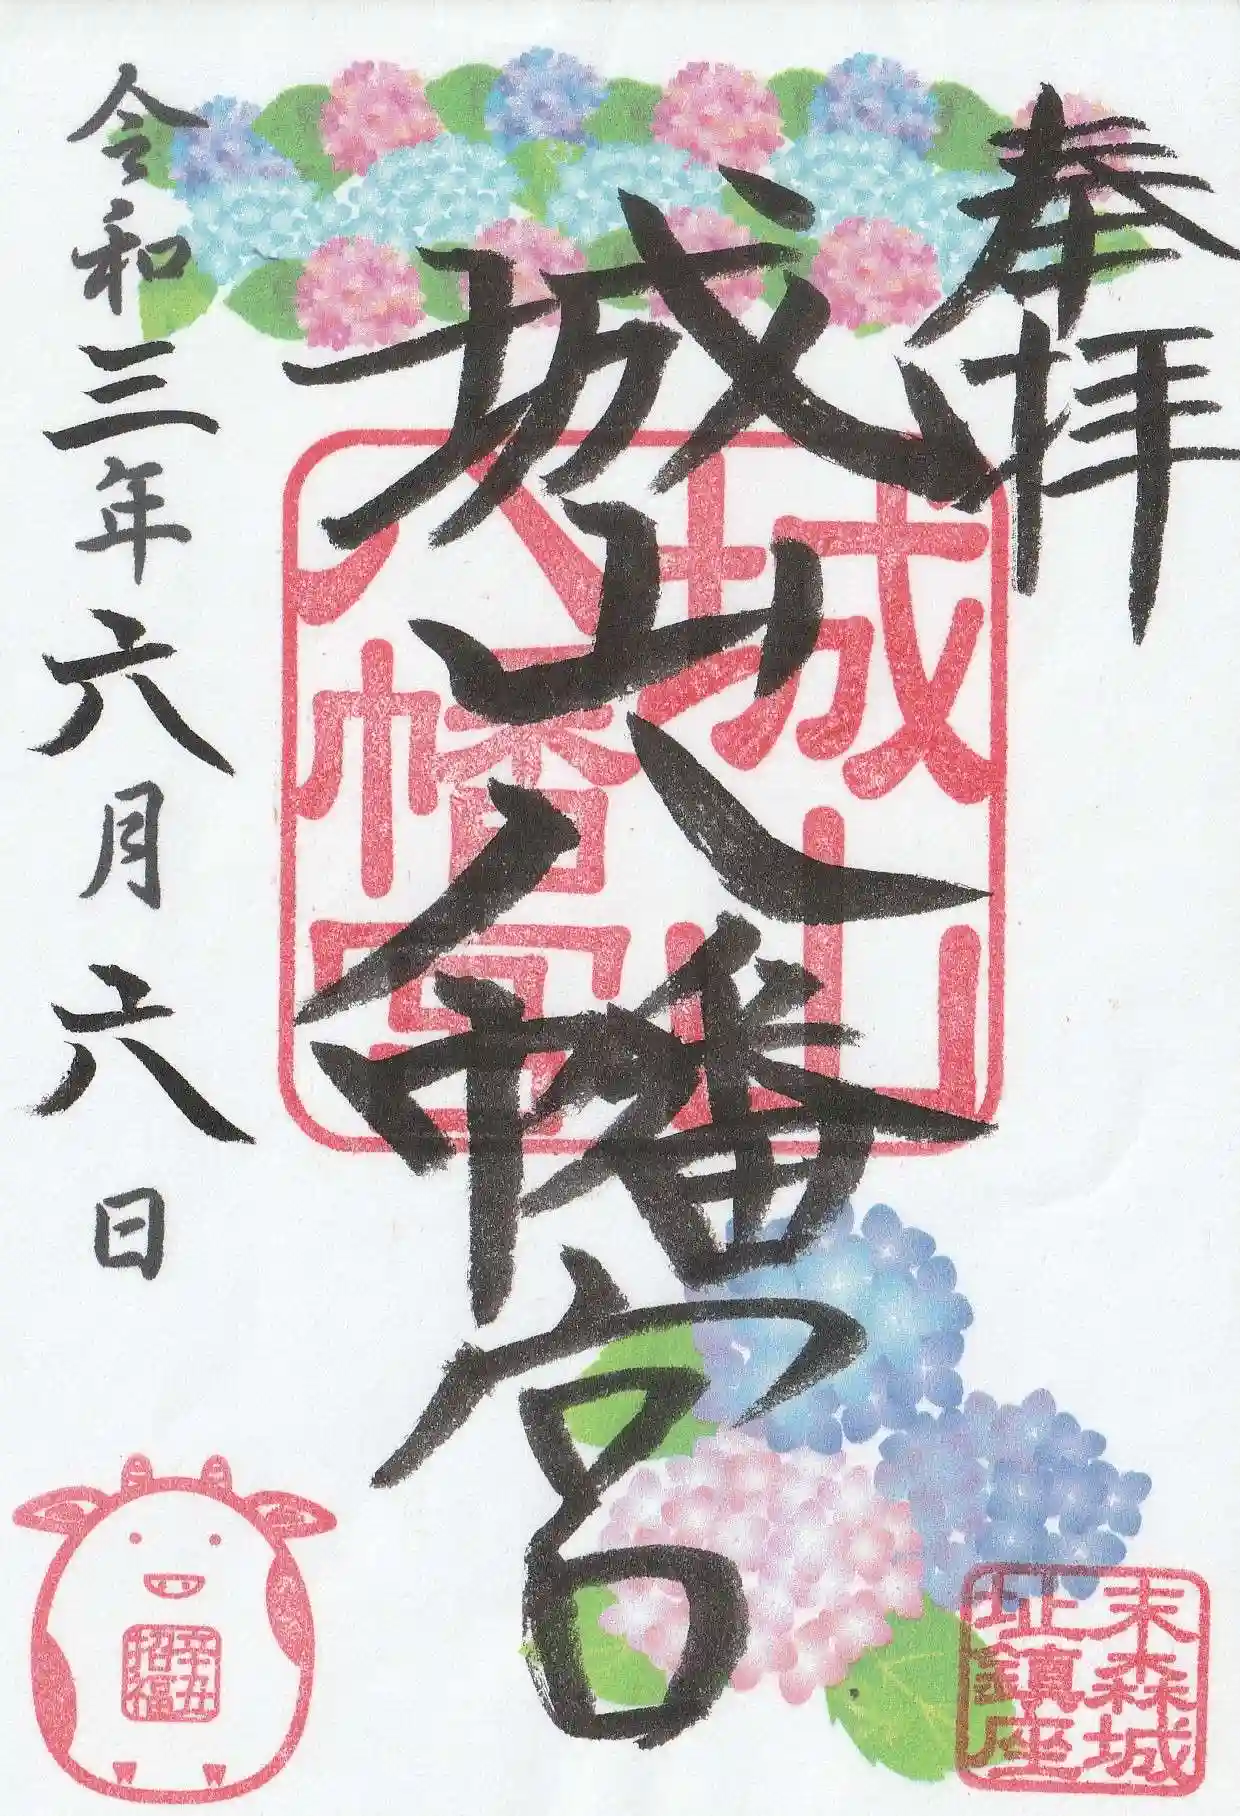 奉拝
城山八幡宮
城山
八幡宮
令和三年六月六日
末森城
址鎮座
辛丑
招福